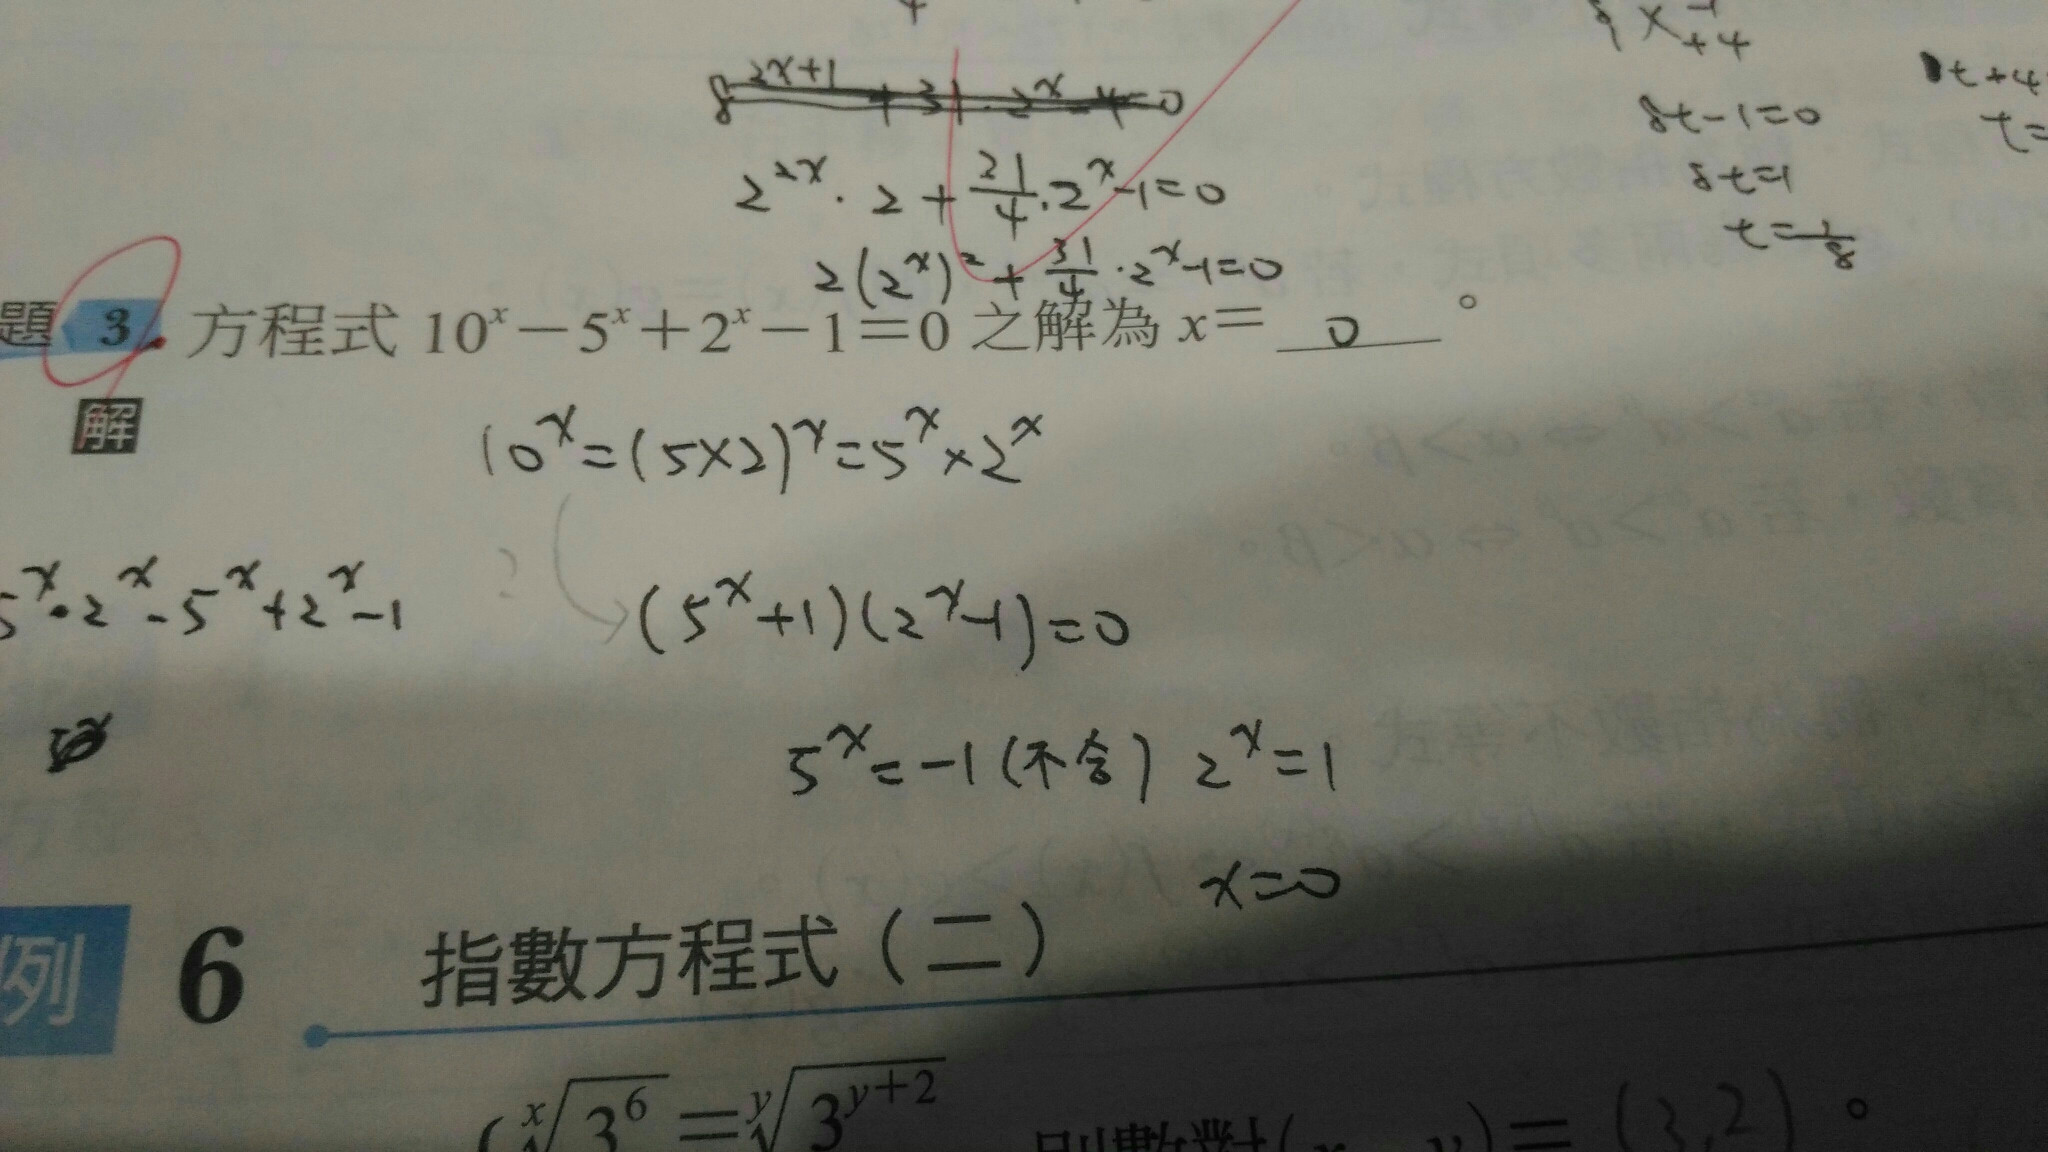 2^{2x}·2+\frac{21}{4}·2^x-1=0
2(2^x)^2+\frac{31}{4}·2^x-1=0
+4
8t-1=0
8t=1
t=\frac{1}{8}
t+4
t=
題 3. 方程式 10^x-5^x+2^x-1=0 之解為 x= 0 。
解
10^x=(5×2)^x=5^x×2^x
5^x·2^x-5^x+2^x-1
(5^x+1)(2^x-1)=0
5^x=-1(不合) 2^x=1
x=0
例 6 指數方程式(二)
\sqrt[x]{3^6}=\sqrt[y]{3^{y+2}} 則數對(x, y)=(3,2)。